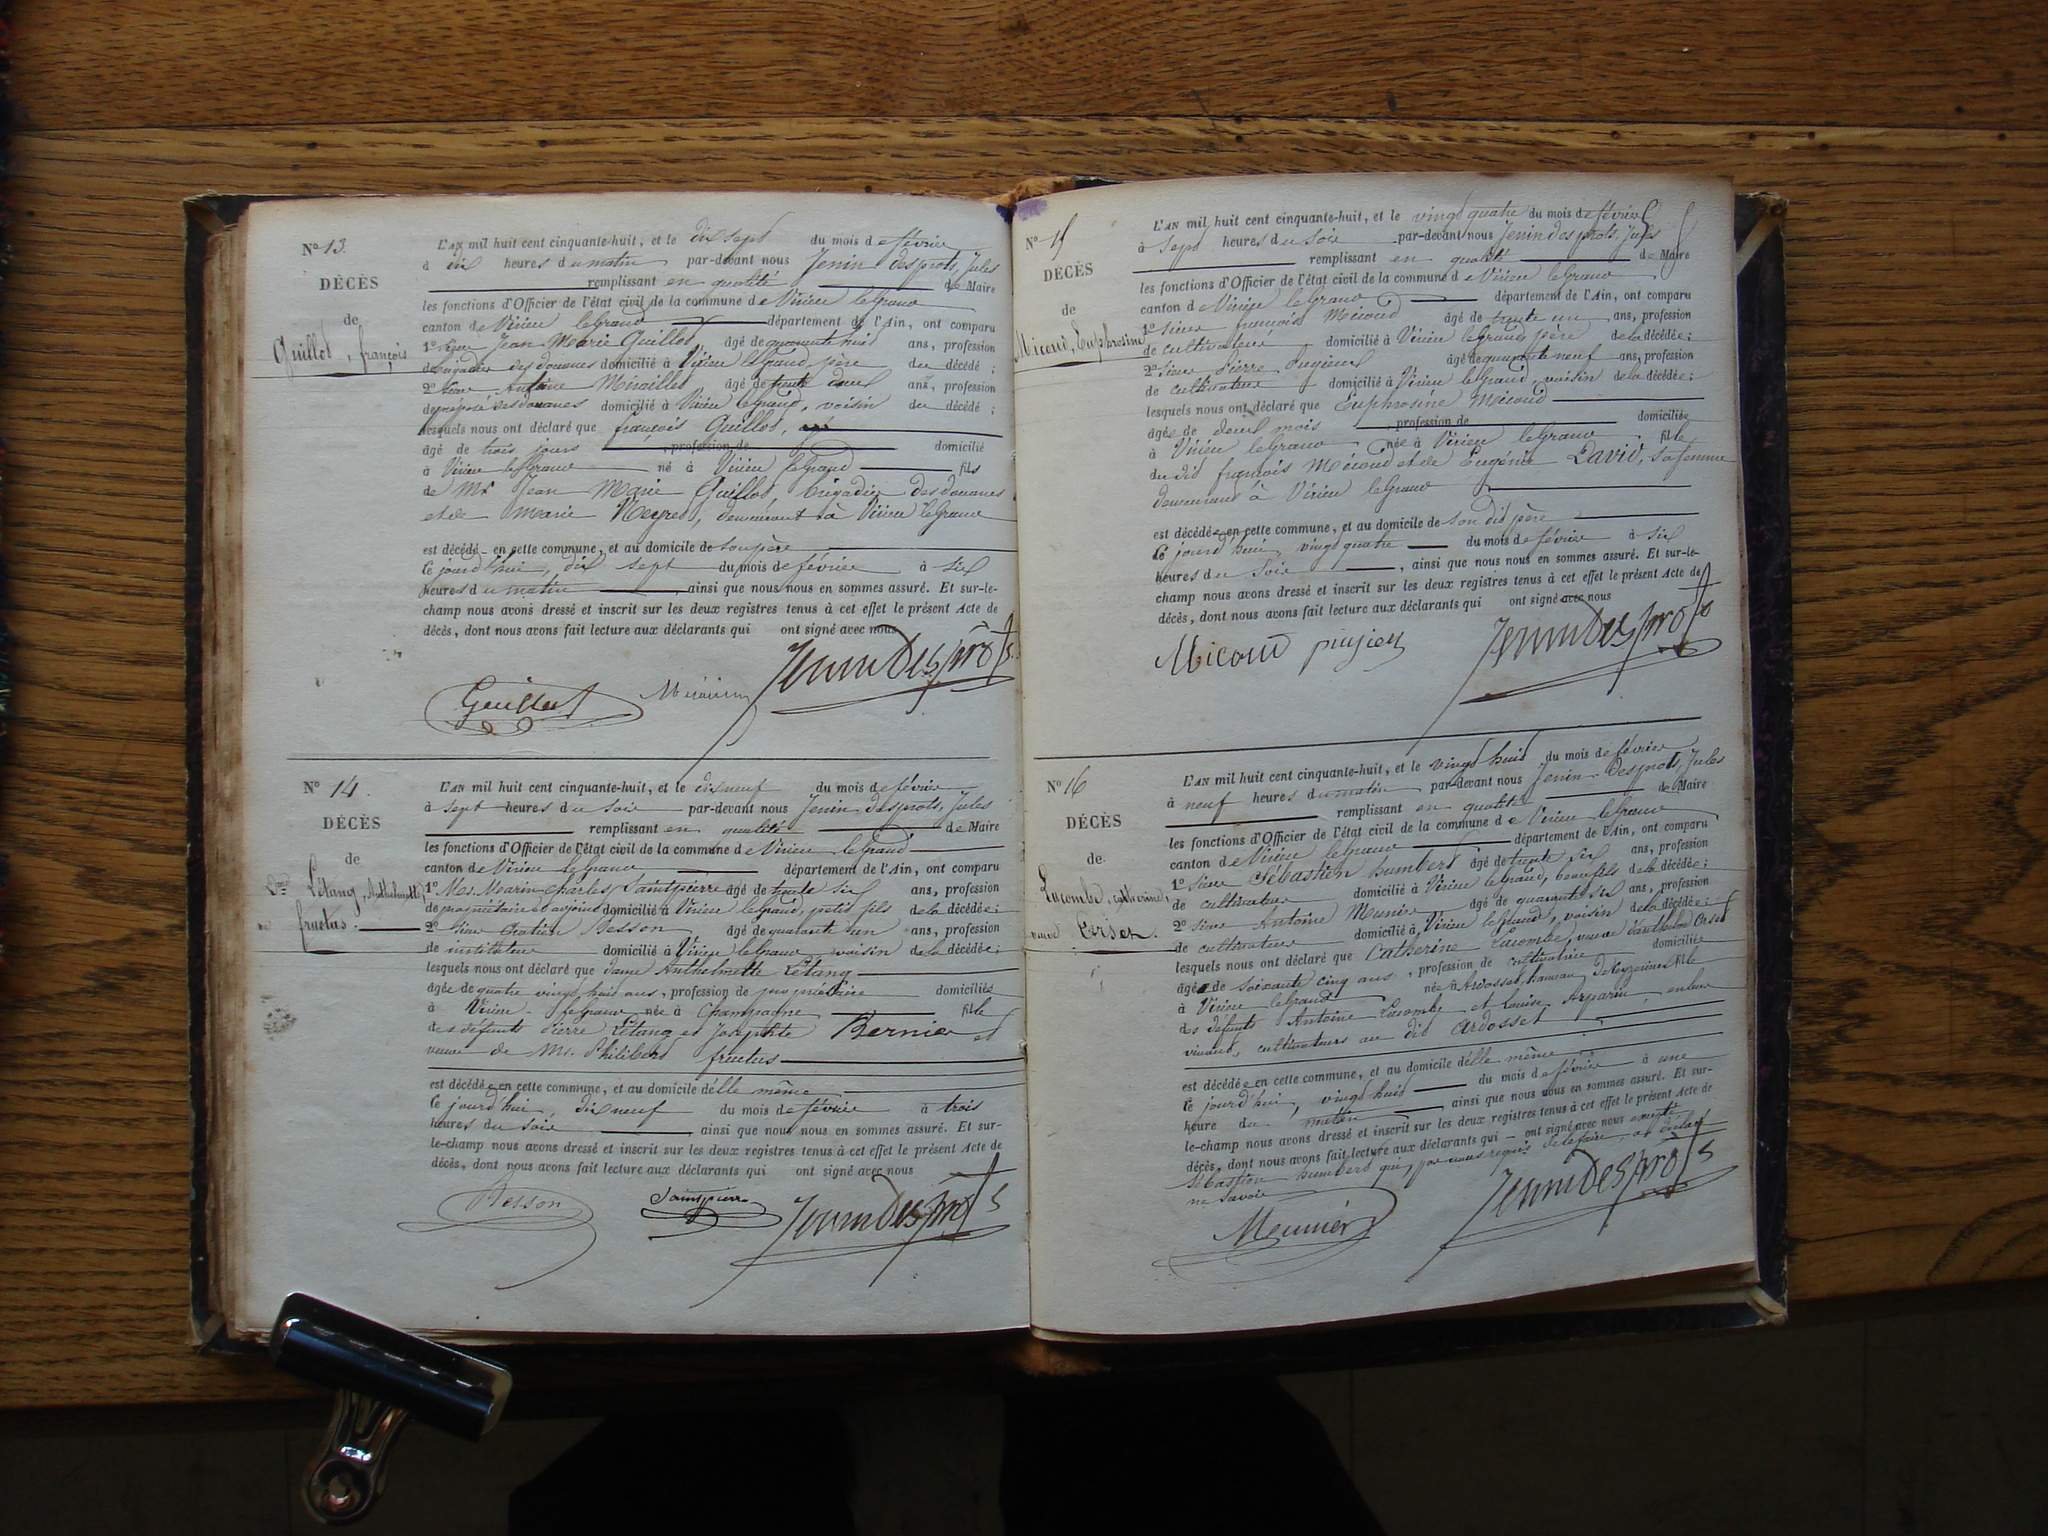 N° 13.
DÉCÈS
de
Guillot, françois
L'AN mil huit cent cinquante-huit, et le dix sept du mois de février
à dix heures du matin par-devant nous Jenin desprots, Jules
remplissant en qualité de Maire
les fonctions d'Officier de l'état civil de la commune de Virieu legrand
canton de Virieu legrand département de l'Ain, ont comparu
1° sieur Jean Marie Guillot, âgé de quarante huit ans, profession
de brigadier des douanes domicilié à Virieu legrand, père du décédé ;
2° sieur Antoine Miraillet âgé de trente deux ans, profession
de préposé des douanes domicilié à Virieu legrand, voisin du décédé ;
lesquels nous ont déclaré que françois Guillot,
âgé de trois jours , profession de domicilié
à Virieu legrand né à Virieu legrand fils
de Mr Jean Marie Guillot, brigadier des douanes
et de Marie Neyret, demeurant à Virieu legrand
est décédé en cette commune, et au domicile de son père
Ce jourd'hui, dix sept du mois de février à six
heures du matin , ainsi que nous nous en sommes assuré. Et sur-le-
champ nous avons dressé et inscrit sur les deux registres tenus à cet effet le présent Acte de
décès, dont nous avons fait lecture aux déclarants qui ont signé avec nous
Guillot JeninDesprots
N° 14.
DÉCÈS
de
Létang, Anthelmette,
fructus.
L'AN mil huit cent cinquante-huit, et le dix neuf du mois de février
à sept heures du soir par-devant nous Jenin desprots, Jules
remplissant en qualité de Maire
les fonctions d'Officier de l'état civil de la commune de Virieu legrand
canton de Virieu legrand département de l'Ain, ont comparu
1° Mr. Marin Charles Saintpierre âgé de trente six ans, profession
de propriétaire et adjoint domicilié à Virieu legrand, petit fils de la décédée ;
2° sieur Besson âgé de quarante un ans, profession
de instituteur domicilié à Virieu legrand voisin de la décédée ;
lesquels nous ont déclaré que dame Anthelmette Létang
âgée de quatre vingt huit ans, profession de propriétaire domiciliée
à Virieu legrand née à Champagne fille
des défunts Pierre Létang et Josephte Bernier et
veuve de Mr. Philibert fructus
est décédée en cette commune, et au domicile d'elle même
Ce jourd'hui, dix neuf du mois de février à trois
heures du soir , ainsi que nous nous en sommes assuré. Et sur-
le-champ nous avons dressé et inscrit sur les deux registres tenus à cet effet le présent Acte de
décès, dont nous avons fait lecture aux déclarants qui ont signé avec nous
Besson Saintpierre JeninDesprots
N° 15
DÉCÈS
de
Micoud, Euphrosine
L'AN mil huit cent cinquante-huit, et le vingt quatre du mois de février
à sept heures du soir par-devant nous Jenin desprots, Jules
remplissant en qualité de Maire
les fonctions d'Officier de l'état civil de la commune de Virieu legrand
canton de Virieu legrand département de l'Ain, ont comparu
1° sieur françois Micoud âgé de trente un ans, profession
de cultivateur domicilié à Virieu legrand père de la décédée ;
2° sieur Pierre Pugieux âgé de quarante neuf ans, profession
de cultivateur domicilié à Virieu legrand, voisin de la décédée ;
lesquels nous ont déclaré que Euphrosine Micoud
âgée de deux mois , profession de domiciliée
à Virieu legrand née à Virieu legrand fille
du dit françois Micoud et de Eugénie David, sa femme
demeurant à Virieu legrand
est décédée en cette commune, et au domicile de son dit père
Ce jourd'hui, vingt quatre du mois de février à six
heures du soir , ainsi que nous nous en sommes assuré. Et sur-le-
champ nous avons dressé et inscrit sur les deux registres tenus à cet effet le présent Acte de
décès, dont nous avons fait lecture aux déclarants qui ont signé avec nous
Micoud JeninDesprots
N° 16
DÉCÈS
de
Lacombe, catherine,
veuve Cerset.
L'AN mil huit cent cinquante-huit, et le vingt huit du mois de février
à neuf heures du matin par-devant nous Jenin-desprots, Jules
remplissant en qualité de Maire
les fonctions d'Officier de l'état civil de la commune de Virieu legrand
canton de Virieu legrand département de l'Ain, ont comparu
1° sieur Sébastien humbert âgé de trente six ans, profession
de cultivateur domicilié à Virieu legrand, beau fils de la décédée ;
2° sieur Antoine Munier âgé de quarante six ans, profession
de cultivateur domicilié à Virieu legrand, voisin de la décédée ;
lesquels nous ont déclaré que Catherine Lacombe, veuve d'anthelme Cerset
âgée de soixante cinq ans , profession de cultivatrice domiciliée
à Virieu legrand née à Ardosset, hameau de fille
des défunts Antoine Lacombe et Louise Arparin,
vivant, cultivateurs au dit Ardosset
est décédée en cette commune, et au domicile d'elle même
Ce jourd'hui, vingt huit du mois de février à une
heure du matin , ainsi que nous nous en sommes assuré. Et sur-
le-champ nous avons dressé et inscrit sur les deux registres tenus à cet effet le présent Acte de
décès, dont nous avons fait lecture aux déclarants qui ont signé avec nous excepté
Sébastien humbert qui, par nous requis de le faire, a déclaré
ne savoir
Meunier JeninDesprots